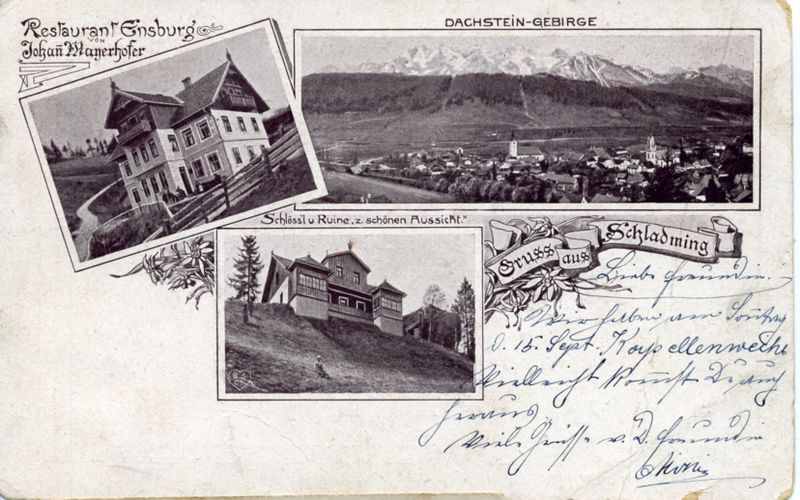 Restaurant Ensburg
VON
Johan̅ Mayerhofer
DACHSTEIN-GEBIRGE
Schlössl u Ruine „z. schönen Aussicht."
Gruss aus Schladming
Liebe Freundin.
Wir haben am Sontag
d. 15. Sept. Kapellenweihe
Vielleicht kom̅st Du auch
heraus
Viele Grüsse v. D. Freundin